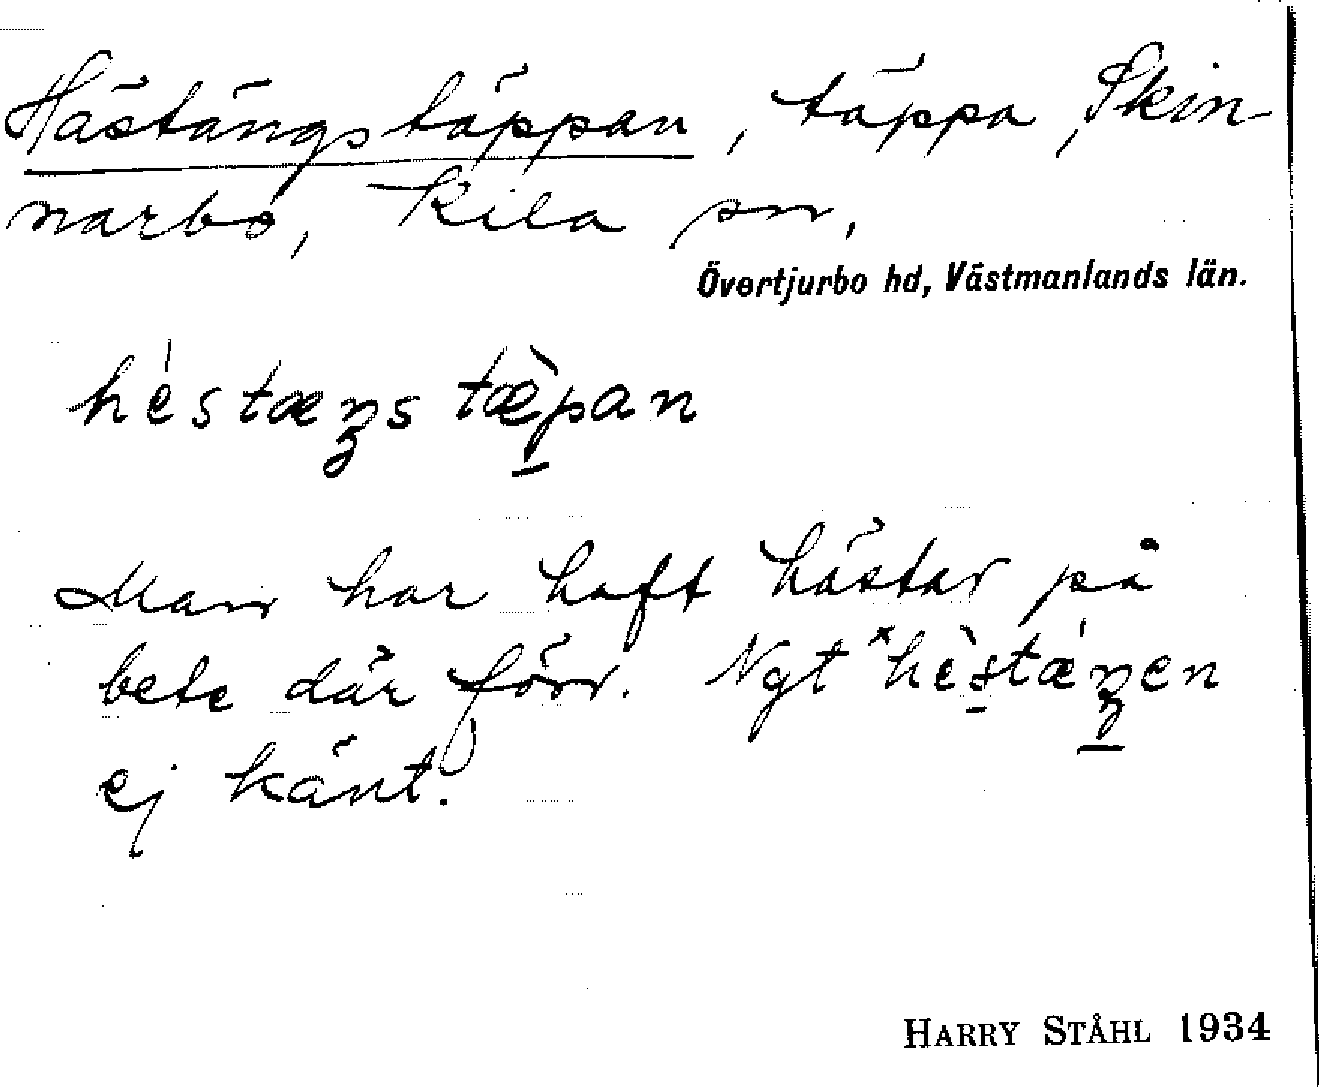 Hästängstäppan, täppa, Skin-
narbo, Kila sn,
Övertjurbo hd, Västmanlands län.
hèstæŋs tæ̀pan
Man har haft hästar på
bete där förr. Ngt *hèstæŋen
ej känt.
HARRY STÅHL 1934